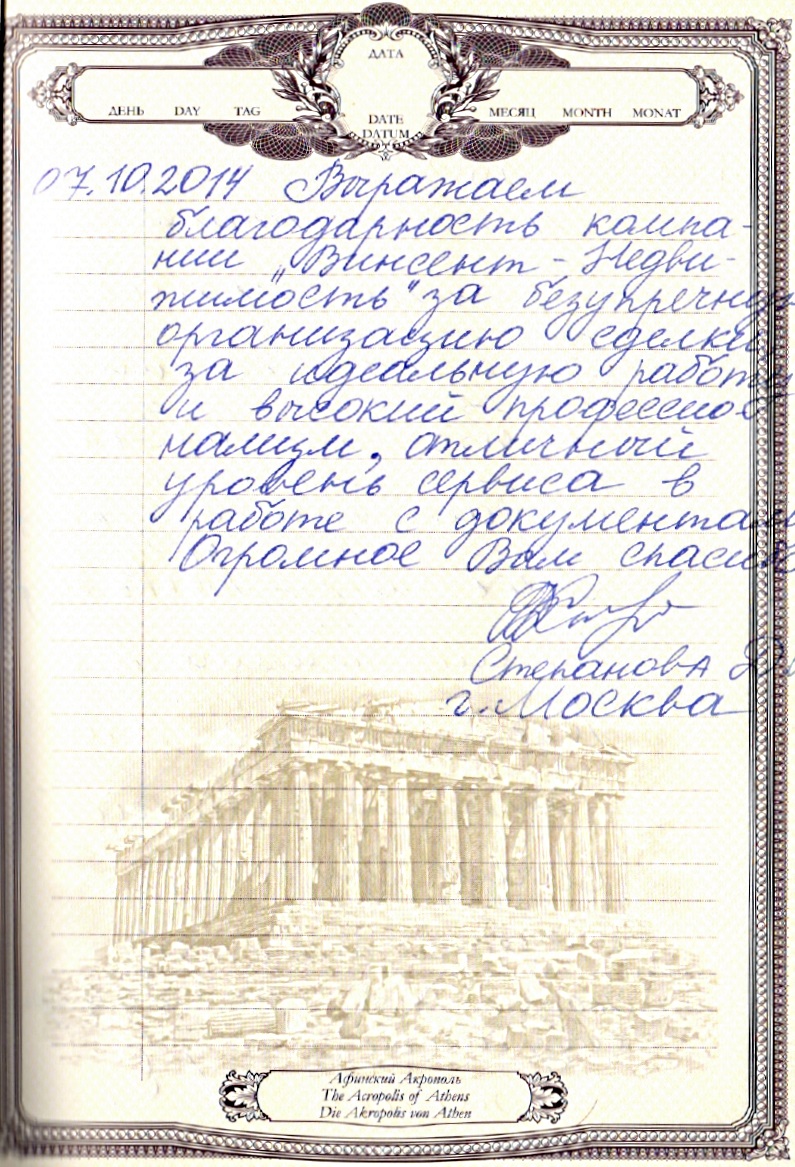 ДАТА
ДЕНЬ DAY TAG
DATE
DATUM
МЕСЯЦ MONTH MONAT
07.10.2014 Выражаем
благодарность компа-
нии „Винсент - Недви-
жимость" за безупречную
организацию сделки
за идеальную работу
и высокий профессио-
нализм, отличный
уровень сервиса в
работе с документам
Огромное Вам спасибо
Степанова
г. Москва
Афинский Акрополь
The Acropolis of Athens
Die Akropolis von Athen